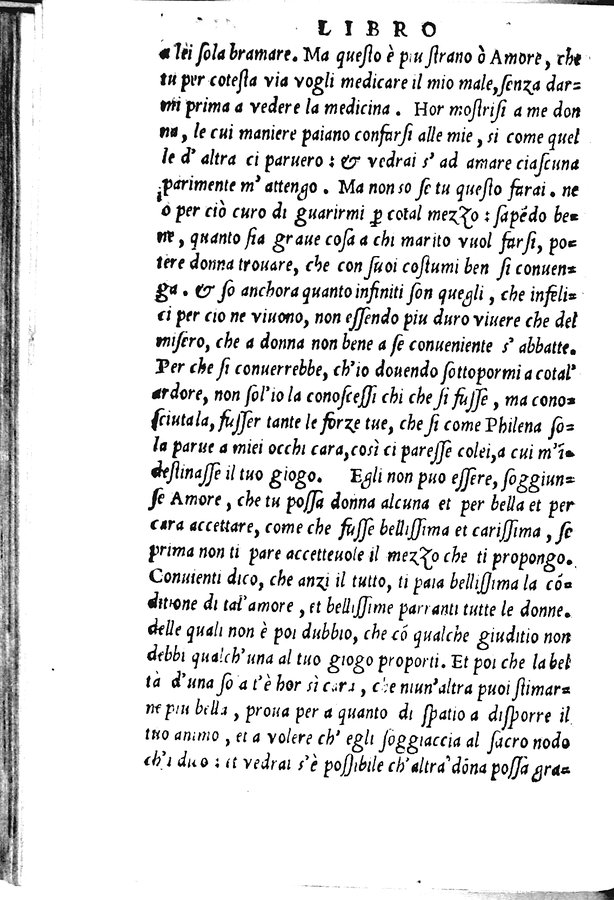 LIBRO
a lei sola bramare. Ma queſto è piu ſtrano ò Amore, che
tu per coteſta via vogli medicare il mio male, ſenza dar=
mi prima a vedere la medicina. Hor moſtriſi a me don
na, le cui maniere paiano confarſi alle mie, si come quel
le d' altra ci paruero : & vedrai s' ad amare ciaſcuna
parimente m' attengo. Ma non so ſe tu queſto farai. ne
ò per ciò curo di guarirmi ꝑ cotal mezzo : ſapēdo be=
ne, quanto ſia graue coſa a chi marito vuol farſi, po=
tere donna trouare, che con ſuoi coſtumi ben ſi conuen=
ga. & ſo anchora quanto infiniti ſon quegli, che infeli=
ci per cio ne viuono, non eſſendo piu duro viuere che del
miſero, che a donna non bene a ſe conueniente s' abbatte.
Per che ſi conuerrebbe, ch'io douendo ſottopormi a cotal'
ardore, non ſol'io la conoſceſſi chi che ſi fuſſe, ma cono=
ſciutala, fuſſer tante le forze tue, che ſi come Philena ſo=
la parue a miei occhi cara, così ci pareſſe colei, a cui m'ī=
deſtinaſſe il tuo giogo. Egli non puo eſſere, ſoggiun=
ſe Amore, che tu poſſa donna alcuna et per bella et per
cara accettare, come che fuſſe belliſſima et cariſſima, ſe
prima non ti pare accetteuole il mezzo che ti propongo.
Conuienti dico, che anzi il tutto, ti paia belliſſima la cō=
ditione di tal' amore, et belliſſime parranti tutte le donne.
delle quali non è poi dubbio, che cō qualche giuditio non
debbi qualch'una al tuo giogo proporti. Et poi che la bel
tà d'una ſo a t'è hor sì cara, che niun'altra puoi ſtimar=
ne piu bella, proua per a quanto di ſpatio a diſporre il
tuo animo, et a volere ch' egli ſoggiaccia al ſacro nodo
ch'i dico : et vedrai s'è poſſibile ch'altra dōna poſſa gra=